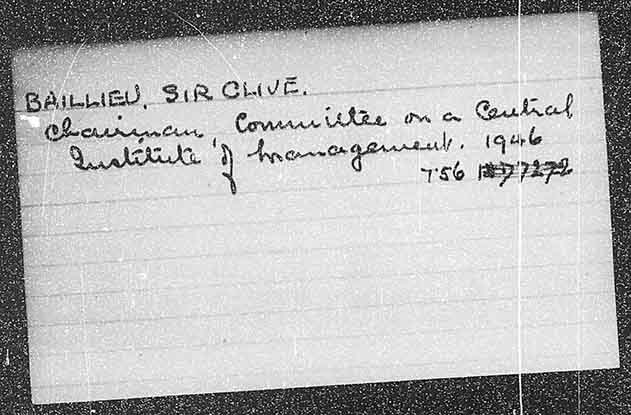 BAILLIEU, SIR CLIVE.
Chairman, Committee on a Central
Institute of Management. 1946
T56